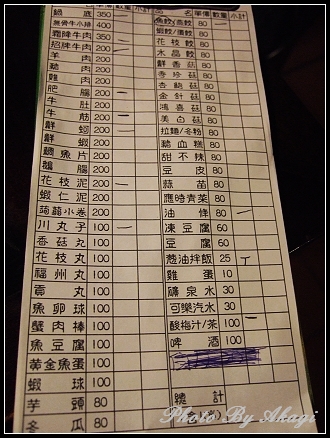 品名 單價 數量 小計
鍋底 350 一
無骨牛小排 400
霜降牛肉 350
招牌牛肉 200 一
羊肉 200
豬肉 200
雞肉 200
肥腸 200
牛肚 200
牛筋 200
鮮蚵 200
鮮蝦 200
鯛魚片 200
鴨腸 200
花枝泥 200
蝦仁泥 200
蒟蒻小卷 200
川丸子 100 一
香菇丸 100
花枝丸 100
福州丸 100
貢丸 100
魚卵球 100
蟹肉棒 100
魚豆腐 100
黃金魚蛋 100
蝦球 100
芋頭 80
冬瓜 80
魚餃/燕餃 80
蝦餃/蛋餃 80
花枝餃 80
水晶餃 80
鮮香菇 80
秀珍菇 80
杏鮑菇 80
金針菇 80
鴻喜菇 80
美白菇 80
拉麵/冬粉 80
豬血糕 80
甜不辣 80
豆皮 80
蒜苗 80
應時青菜 80
油條 80 一
凍豆腐 60
豆腐 60
蔥油拌飯 25
雞蛋 10
礦泉水 30
可樂汽水 30
酸梅汁/茶 100 一
啤酒 100
總計
Photo By Akagi